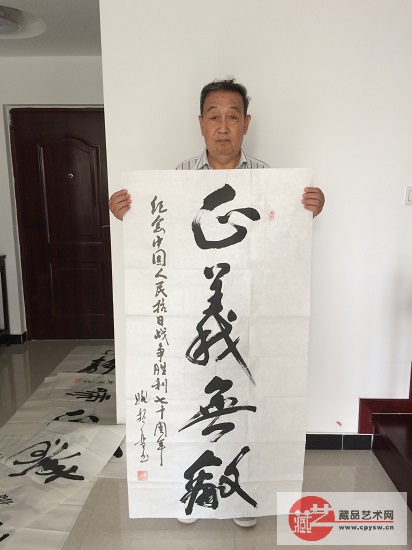 正義無敵
纪念中国人民抗日战争胜利七十周年
藏品艺术网
www.cpysw.cn